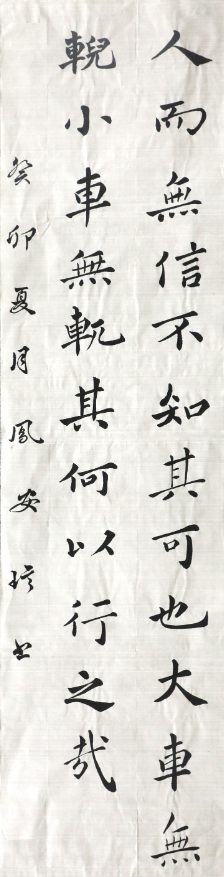 人而無信不知其可也大車無
輗小車無軏其何以行之哉
癸卯夏月鳳安 書